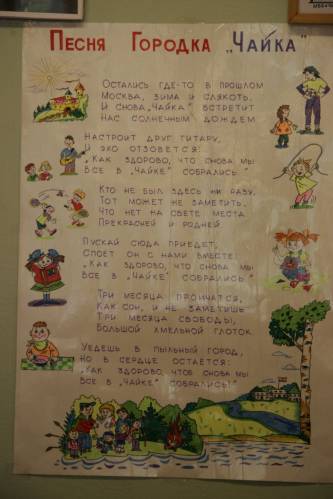 Песня Городка „Чайка"
Остались где-то в прошлом
Москва, зима и слякоть.
И снова „Чайка" встретит
Нас солнечным дождем
Настроит друг гитару,
И эхо отзовётся:
„Как здорово, что снова мы
Все в „Чайке" собрались."
Кто не был здесь ни разу,
Тот может не заметить.
Что нет на свете места
Прекрасней и родней
Пускай сюда приедет,
Споет он с нами вместе:
„Как здорово, что снова мы
Все в „Чайке" собрались."
Три месяца промчатся,
Как сон, и не заметишь
Три месяца свободы,
Большой хмельной глоток
Уедешь в пыльный город,
Но в сердце остаётся:
„Как здорово, чтоб снова мы
Все в „Чайке" собрались!"